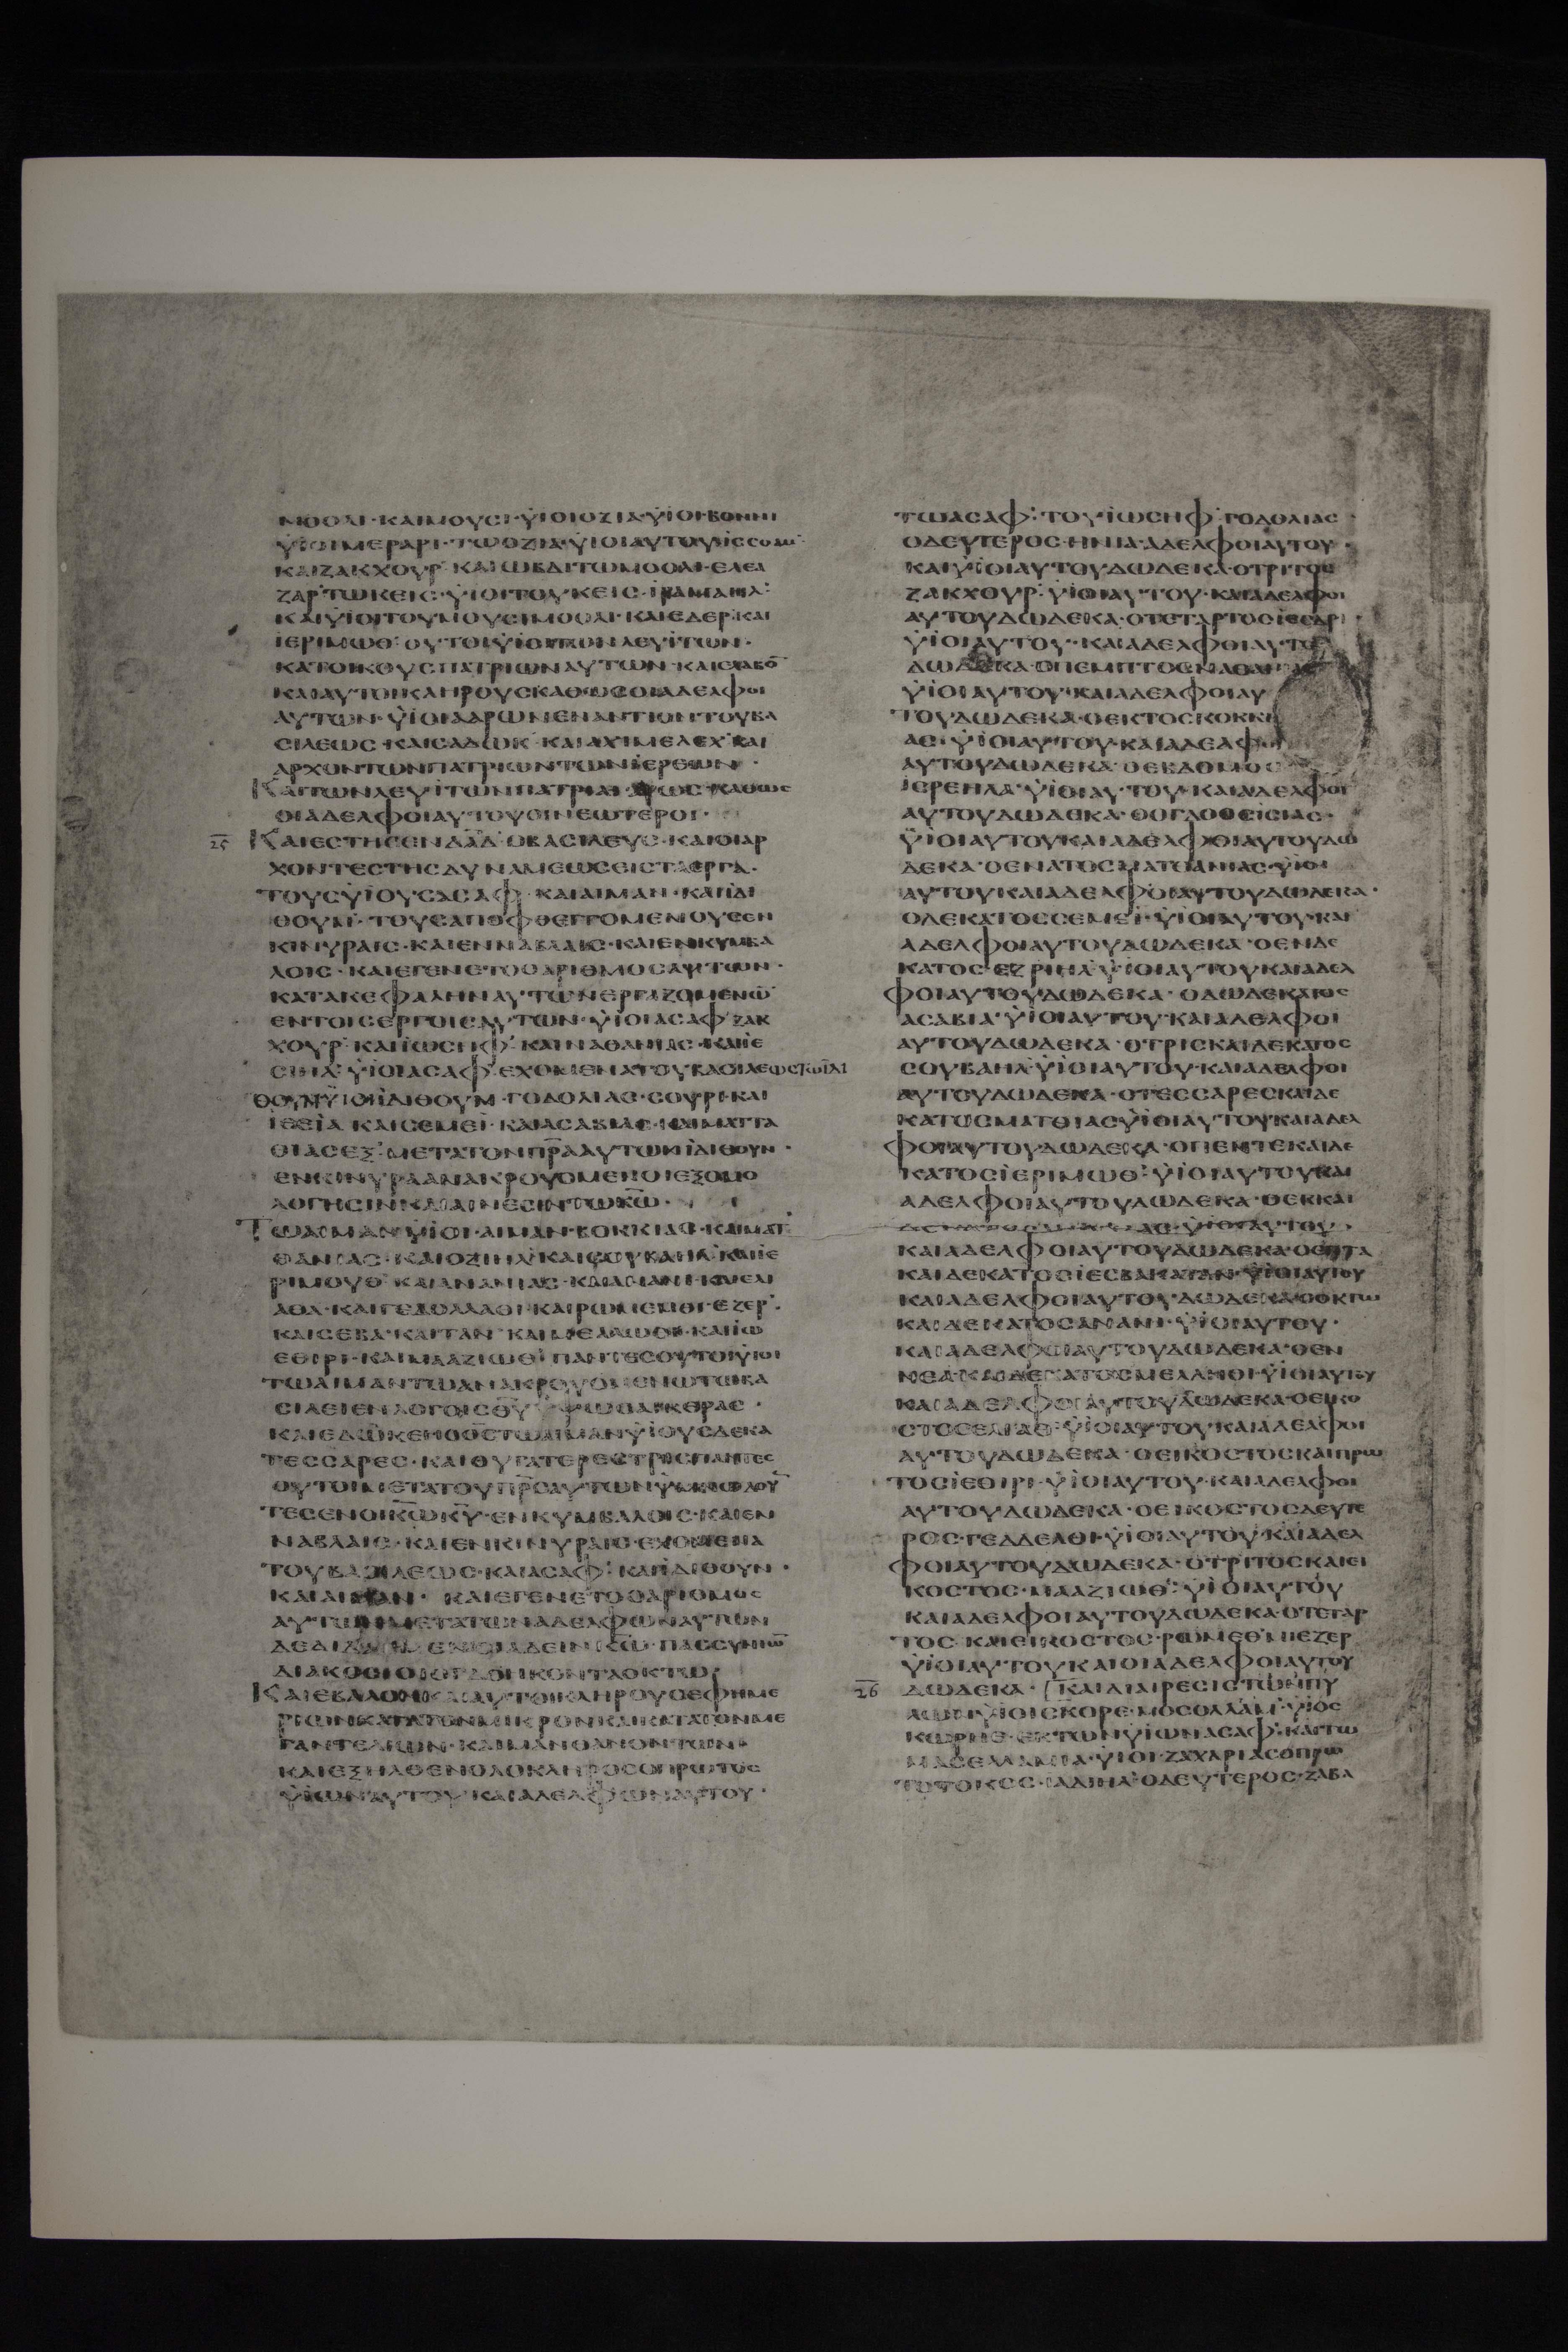 ΜΟΟΛΙ·ΚΑΙΜΟΥCΙ·ΥΙΟΙΟΖΙΑ·ΥΙΟΙ·ΒΟΝΝΙ
ΥΙΟΙΜΕΡΑΡΙ·ΤΩΟΖΙΑ·ΥΙΟΙΑΥΤΟΥ
ΚΑΙΖΑΚΧΟΥΡ ΚΑΙΩΒΔΙΤΩΜΟΟΛΙ·ΕΛΕΑ
ΖΑΡ ΤΩΚΕΙC·ΥΙΟΙΤΟΥΚΕΙC·
ΚΑΙΥΙΟΙΤΟΥΜΟΥCΙΜΟΟΛΙ·ΚΑΙΕΔΕΡ·ΚΑΙ
ΙΕΡΙΜΩΘ·ΟΥΤΟΙΥΙΟΙΤΩΝΛΕΥΙΤΩΝ·
ΚΑΤΟΙΚΟΥCΠΑΤΡΙΩΝΑΥΤΩΝ·
ΚΑΙΑΥΤΟΙΚΛΗΡΟΥCΚΑΘΩCΟΙΑΔΕΛΦΟΙ
ΑΥΤΩΝ·ΥΙΟΙΑΑΡΩΝΕΝΑΝΤΙΟΝΤΟΥΒΑ
CΙΛΕΩC·ΚΑΙCΑΔΩΚ ΚΑΙΑΧΙΜΕΛΕΧ ΚΑΙ
ΑΡΧΟΝΤΩΝΠΑΤΡΙΩΝΤΩΝΙΕΡΕΩΝ·
ΚΑΙΤΩΝΛΕΥΙΤΩΝΠΑΤΡΙΑΙ ΚΑΘΩC
ΟΙΑΔΕΛΦΟΙΑΥΤΟΥΟΙΝΕΩΤΕΡΟΙ·
25 ΚΑΙΕCΤΗCΕΝΔΑΔ ΟΒΑCΙΛΕΥC·ΚΑΙΟΙΑΡ
ΧΟΝΤΕCΤΗCΔΥΝΑΜΕΩCΕΙCΤΑΕΡΓΑ·
ΤΟΥCΥΙΟΥCΑCΑΦ·ΚΑΙΑΙΜΑΝ·ΚΑΙΙΔΙ
ΘΟΥΜ·ΤΟΥCΑΠΟΦΘΕΓΓΟΜΕΝΟΥCΕΝ
ΚΙΝΥΡΑΙC·ΚΑΙΕΝΝΑΒΛΑΙC·ΚΑΙΕΝΚΥΜΒΑ
ΛΟΙC·ΚΑΙΕΓΕΝΕΤΟΟΑΡΙΘΜΟCΑΥΤΩΝ·
ΚΑΤΑΚΕΦΑΛΗΝΑΥΤΩΝΕΡΓΑΖΟΜΕΝΩ̅
ΕΝΤΟΙCΕΡΓΟΙCΑΥΤΩΝ·ΥΙΟΙΑCΑΦ ΖΑΚ
ΧΟΥΡ·ΚΑΙΙΩCΗΦ·ΚΑΙΝΑΘΑΝΙΑC·ΚΑΙΙΕ
CΙΗΛ ΥΙΟΙΑCΑΦ ΕΧΟΜΕΝΑΤΟΥΒΑCΙΛΕΩC
ΘΟΥΜΥΙΟΙΙΔΙΘΟΥΜ·ΓΟΔΟΛΙΑC·CΟΥΡΙ·ΚΑΙ
ΙCΕΙΑ ΚΑΙCΕΜΕΙ·ΚΑΙΑCΑΒΙΑC·ΚΑΙΜΑΤΤΑ
ΘΙΑC ΕΞ·ΜΕΤΑΤΟΝΠΡΑΑΥΤΩΝΙΔΙΘΟΥΝ·
ΕΝΚΙΝΥΡΑΑΝΑΚΡΟΥΟΜΕΝΟΙΕΞΟΜΟ
ΛΟΓΗCΙΝΚΑΙΑΙΝΕCΙΝΤΩΚΩ·
ΤΩΑΙΜΑΝΥΙΟΙ·ΑΙΜΑΝ·ΒΟΚΚΙΑC·ΚΑΙΜΑΤ
ΘΑΝΙΑC·ΚΑΙΟΖΙΗΛ ΚΑΙCΟΥΒΑΗΛ ΚΑΙΙΕ
ΡΙΜΟΥΘ ΚΑΙΑΝΑΝΙΑC·ΚΑΙΑΝΑΝΙ·ΚΑΙΕΛΙ
ΑΘΑ·ΚΑΙΓΕΔΟΛΛΑΘΙ·ΚΑΙΡΩΜΕΜΘΙ·ΕΖΕΡ·
ΚΑΙCΕΒΑ·ΚΑΙΤΑΝ ΚΑΙΜΕΛΛΩΘΙ·ΚΑΙΙΩ
ΕΘΙΡΙ·ΚΑΙΜΑΑΖΙΩΘ ΠΑΝΤΕCΟΥΤΟΙΥΙΟΙ
ΤΩΑΙΜΑΝΤΩΑΝΑΚΡΟΥΟΜΕΝΩΤΩΒΑ
CΙΛΕΙΕΝΛΟΓΟΙCΘΥ ΥΨΩCΑΙΚΕΡΑC·
ΚΑΙΕΔΩΚΕΝΟΘCΤΩΑΙΜΑΝΥΙΟΥCΔΕΚΑ
ΤΕCCΑΡΕC·ΚΑΙΘΥΓΑΤΕΡΕCΤΡΕΙCΠΑΝΤΕC
ΟΥΤΟΙΜΕΤΑΤΟΥΠΡCΑΥΤΩΝ
ΤΕCΕΝΟΙΚΩΚΥ·ΕΝΚΥΜΒΑΛΟΙC·ΚΑΙΕΝ
ΝΑΒΛΑΙC·ΚΑΙΕΝΚΙΝΥΡΑΙC·ΕΧΟΜΕΝΑ
ΤΟΥΒΑCΙΛΕΩC·ΚΑΙΑCΑΦ·ΚΑΙΙΔΙΘΟΥΝ·
ΚΑΙΑΙΜΑΝ· ΚΑΙΕΓΕΝΕΤΟΟΑΡΙΘΜΟC
ΑΥΤΩΝΜΕΤΑΤΩΝΑΔΕΛΦΩΝΑΥΤΩΝ
ΑΔΕΙΝΚΩ·ΠΑCCΥΝΙΩ̅
ΔΙΑΚΟCΙΟΙΟΓΔΟΗΚΟΝΤΑΟΚΤΩ
ΚΑΙΕΒΑΛΟΝΚΑΙΑΥΤΟΙΚΛΗΡΟΥCΕΦΗΜΕ
ΡΙΩΝΚΑΤΑΤΟΝΜΙΚΡΟΝΚΑΙΚΑΤΑΤΟΝΜΕ
ΓΑΝΤΕΛΙΩΝ·ΚΑΙΜΑΝΘΑΝΟΝΤΩΝ·
ΚΑΙΕΞΗΛΘΕΝΟΚΛΗΡΟCΟΠΡΩΤΟC
ΥΙΩΝΑΥΤΟΥ ΚΑΙΑΔΕΛΦΩΝΑΥΤΟΥ·
ΤΩΑCΑΦ·ΤΟΥΙΩCΗΦ·ΓΟΔΟΛΙΑC
ΟΔΕΥΤΕΡΟC·ΗΝΙΑ·ΑΔΕΛΦΟΙΑΥΤΟΥ·
ΚΑΙΥΙΟΙΑΥΤΟΥΔΩΔΕΚΑ·ΟΤΡΙΤΟC
ΖΑΚΧΟΥΡ·ΥΙΟΙΑΥΤΟΥ·ΚΑΙΑΔΕΛΦΟΙ
ΑΥΤΟΥΔΩΔΕΚΑ·ΟΤΕΤΑΡΤΟCΙΕCΔΡΙ
ΥΙΟΙΑΥΤΟΥ·ΚΑΙΑΔΕΛΦΟΙΑΥΤΟΥ
ΔΩΔΕΚΑ·ΟΠΕΜΠΤΟC
ΥΙΟΙΑΥΤΟΥ·ΚΑΙΑΔΕΛΦΟΙΑΥ
ΤΟΥΔΩΔΕΚΑ·ΟΕΚΤΟCΚΟΚΚΙ
ΑC·ΥΙΟΙΑΥΤΟΥ·ΚΑΙΑΔΕΛΦΟΙ
ΑΥΤΟΥΔΩΔΕΚΑ·ΟΕΒΔΟΜΟC
ΙCΡΕΗΛΑ·ΥΙΟΙΑΥΤΟΥ·ΚΑΙΑΔΕΛΦΟΙ
ΑΥΤΟΥΔΩΔΕΚΑ·ΟΟΓΔΟΟCΙCΙΑC·
ΥΙΟΙΑΥΤΟΥΚΑΙΑΔΕΛΦΟΙΑΥΤΟΥΔΩ
ΔΕΚΑ·ΟΕΝΑΤΟCΜΑΤΘΑΝΙΑC·ΥΙΟΙ
ΑΥΤΟΥΚΑΙΑΔΕΛΦΟΙΑΥΤΟΥΔΩΔΕΚΑ·
ΟΔΕΚΑΤΟCCΕΜΕΙ·ΥΙΟΙΑΥΤΟΥ·ΚΑΙ
ΑΔΕΛΦΟΙΑΥΤΟΥΔΩΔΕΚΑ·ΟΕΝΔΕ
ΚΑΤΟC·ΕΖΡΙΗΛ·ΥΙΟΙΑΥΤΟΥΚΑΙΑΔΕΛ
ΦΟΙΑΥΤΟΥΔΩΔΕΚΑ·ΟΔΩΔΕΚΑΤΟC
ΑCΑΒΙΑ·ΥΙΟΙΑΥΤΟΥ·ΚΑΙΑΔΕΛΦΟΙ
ΑΥΤΟΥΔΩΔΕΚΑ·ΟΤΡΙCΚΑΙΔΕΚΑΤΟC
CΟΥΒΑΗΛ·ΥΙΟΙΑΥΤΟΥ·ΚΑΙΑΔΕΛΦΟΙ
ΑΥΤΟΥΔΩΔΕΚΑ·ΟΤΕCCΑΡΕCΚΑΙΔΕ
ΚΑΤΟCΜΑΤΘΙΑCΥΙΟΙΑΥΤΟΥΚΑΙΑΔΕΛ
ΦΟΙΑΥΤΟΥΔΩΔΕΚΑ·ΟΠΕΝΤΕΚΑΙΔΕ
ΚΑΤΟCΙΕΡΙΜΩΘ·ΥΙΟΙΑΥΤΟΥΚΑΙ
ΑΔΕΛΦΟΙΑΥΤΟΥΔΩΔΕΚΑ·ΟΕΚΚΑΙ
ΥΙΟΙΑΥΤΟΥ·
ΚΑΙΑΔΕΛΦΟΙΑΥΤΟΥΔΩΔΕΚΑ·ΟΕΠΤΑ
ΚΑΙΔΕΚΑΤΟCΙΕCΒΑΚΑΤΑΝ·ΥΙΟΙΑΥΤΟΥ
ΚΑΙΑΔΕΛΦΟΙΑΥΤΟΥ·ΔΩΔΕΚΑ·ΟΟΚΤΩ
ΚΑΙΔΕΚΑΤΟCΑΝΑΝΙ·ΥΙΟΙΑΥΤΟΥ·
ΚΑΙΑΔΕΛΦΟΙΑΥΤΟΥΔΩΔΕΚΑ·ΟΕΝ
ΝΕΑΚΑΙΔΕΚΑΤΟCΜΕΛΛΗΘΙ·ΥΙΟΙΑΥΤΟΥ
ΚΑΙΑΔΕΛΦΟΙΑΥΤΟΥΔΩΔΕΚΑ·ΟΕΙΚΟ
CΤΟCΕΛΙΑΘ·ΥΙΟΙΑΥΤΟΥ·ΚΑΙΑΔΕΛΦΟΙ
ΑΥΤΟΥΔΩΔΕΚΑ·ΟΕΙΚΟCΤΟCΚΑΙΠΡΩ
ΤΟCΙΕΘΙΡΙ·ΥΙΟΙΑΥΤΟΥ·ΚΑΙΑΔΕΛΦΟΙ
ΑΥΤΟΥΔΩΔΕΚΑ·ΟΕΙΚΟCΤΟCΔΕΥΤΕ
ΡΟC·ΓΕΔΔΕΛΘΙ·ΥΙΟΙΑΥΤΟΥ·ΚΑΙΑΔΕΛ
ΦΟΙΑΥΤΟΥΔΩΔΕΚΑ·ΟΤΡΙΤΟCΚΑΙΕΙ
ΚΟCΤΟC·ΜΑΑΖΙΩΘ·ΥΙΟΙΑΥΤΟΥ
ΚΑΙΑΔΕΛΦΟΙΑΥΤΟΥΔΩΔΕΚΑ·ΟΤΕΤΑΡ
ΤΟC·ΚΑΙΕΙΚΟCΤΟC·ΡΩΜΕΘΜΙΕΖΕΡ
ΥΙΟΙΑΥΤΟΥΚΑΙΟΙΑΔΕΛΦΟΙΑΥΤΟΥ
26 ΔΩΔΕΚΑ·[ΚΑΙΔΙΑΙΡΕCΙCΤΩΝΠΥ
ΛΩΝΥΙΟΙCΚΟΡΕ·ΜΟCΟΛΛΑΜ·ΥΙΟC
ΚΩΡΗΕ·ΕΚΤΩΝΥΙΩΝΑCΑΦ·ΚΑΙΤΩ
ΜΑCΕΛΛΑΜΙΑ·ΥΙΟΙ·ΖΑΧΑΡΙΑCΟΠΡΩ
ΤΟΤΟΚΟC·ΙΑΔΙΗΛ·ΟΔΕΥΤΕΡΟC·ΖΑΒΑ